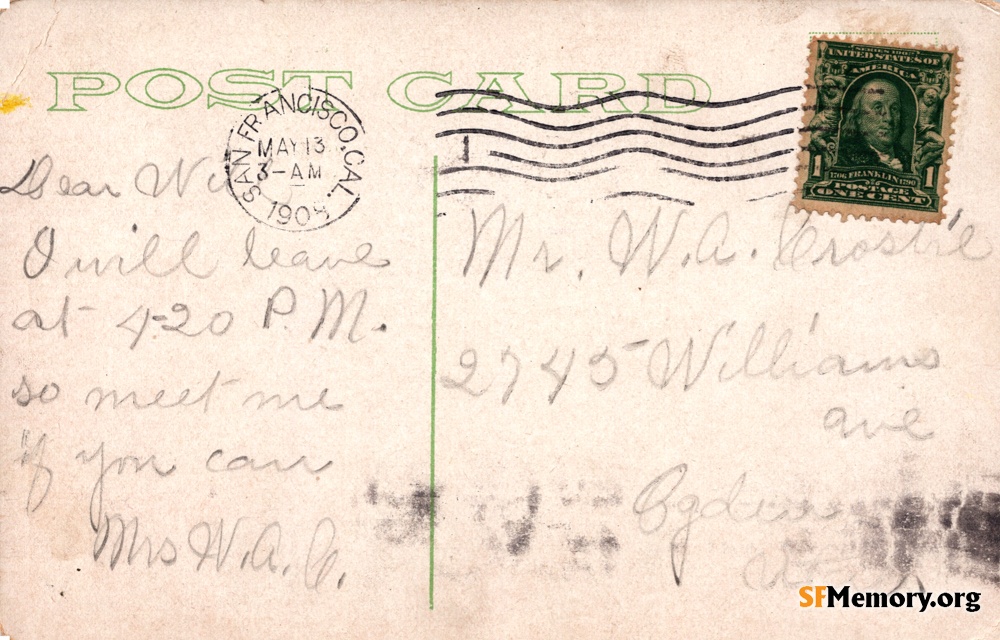 POST CARD
SAN FRANCISCO, CAL.
MAY 13
3-AM
190
1
SERIES 1902
UNITED STATES OF
AMERICA
1 1
1706 FRANKLIN 1790
POSTAGE
ONE CENT
Dear
I will leave
at 4-20 P.M.
so meet me
if you can
Mrs W.A.C.
Mr. W.A. Crosbie
2745 Williams
ave
Ogden
SFMemory.org